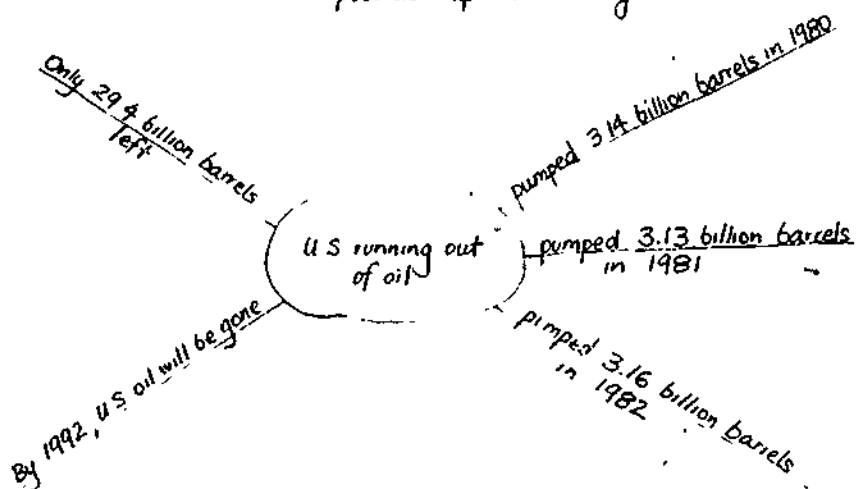 Only 29 4 billion barrels
left
pumped 3 14 billion barrels in 1980
U S running out
of oil
pumped 3.13 billion barrels
in 1981
By 1992, U S oil will be gone
pumped 3.16 billion barrels
in 1982